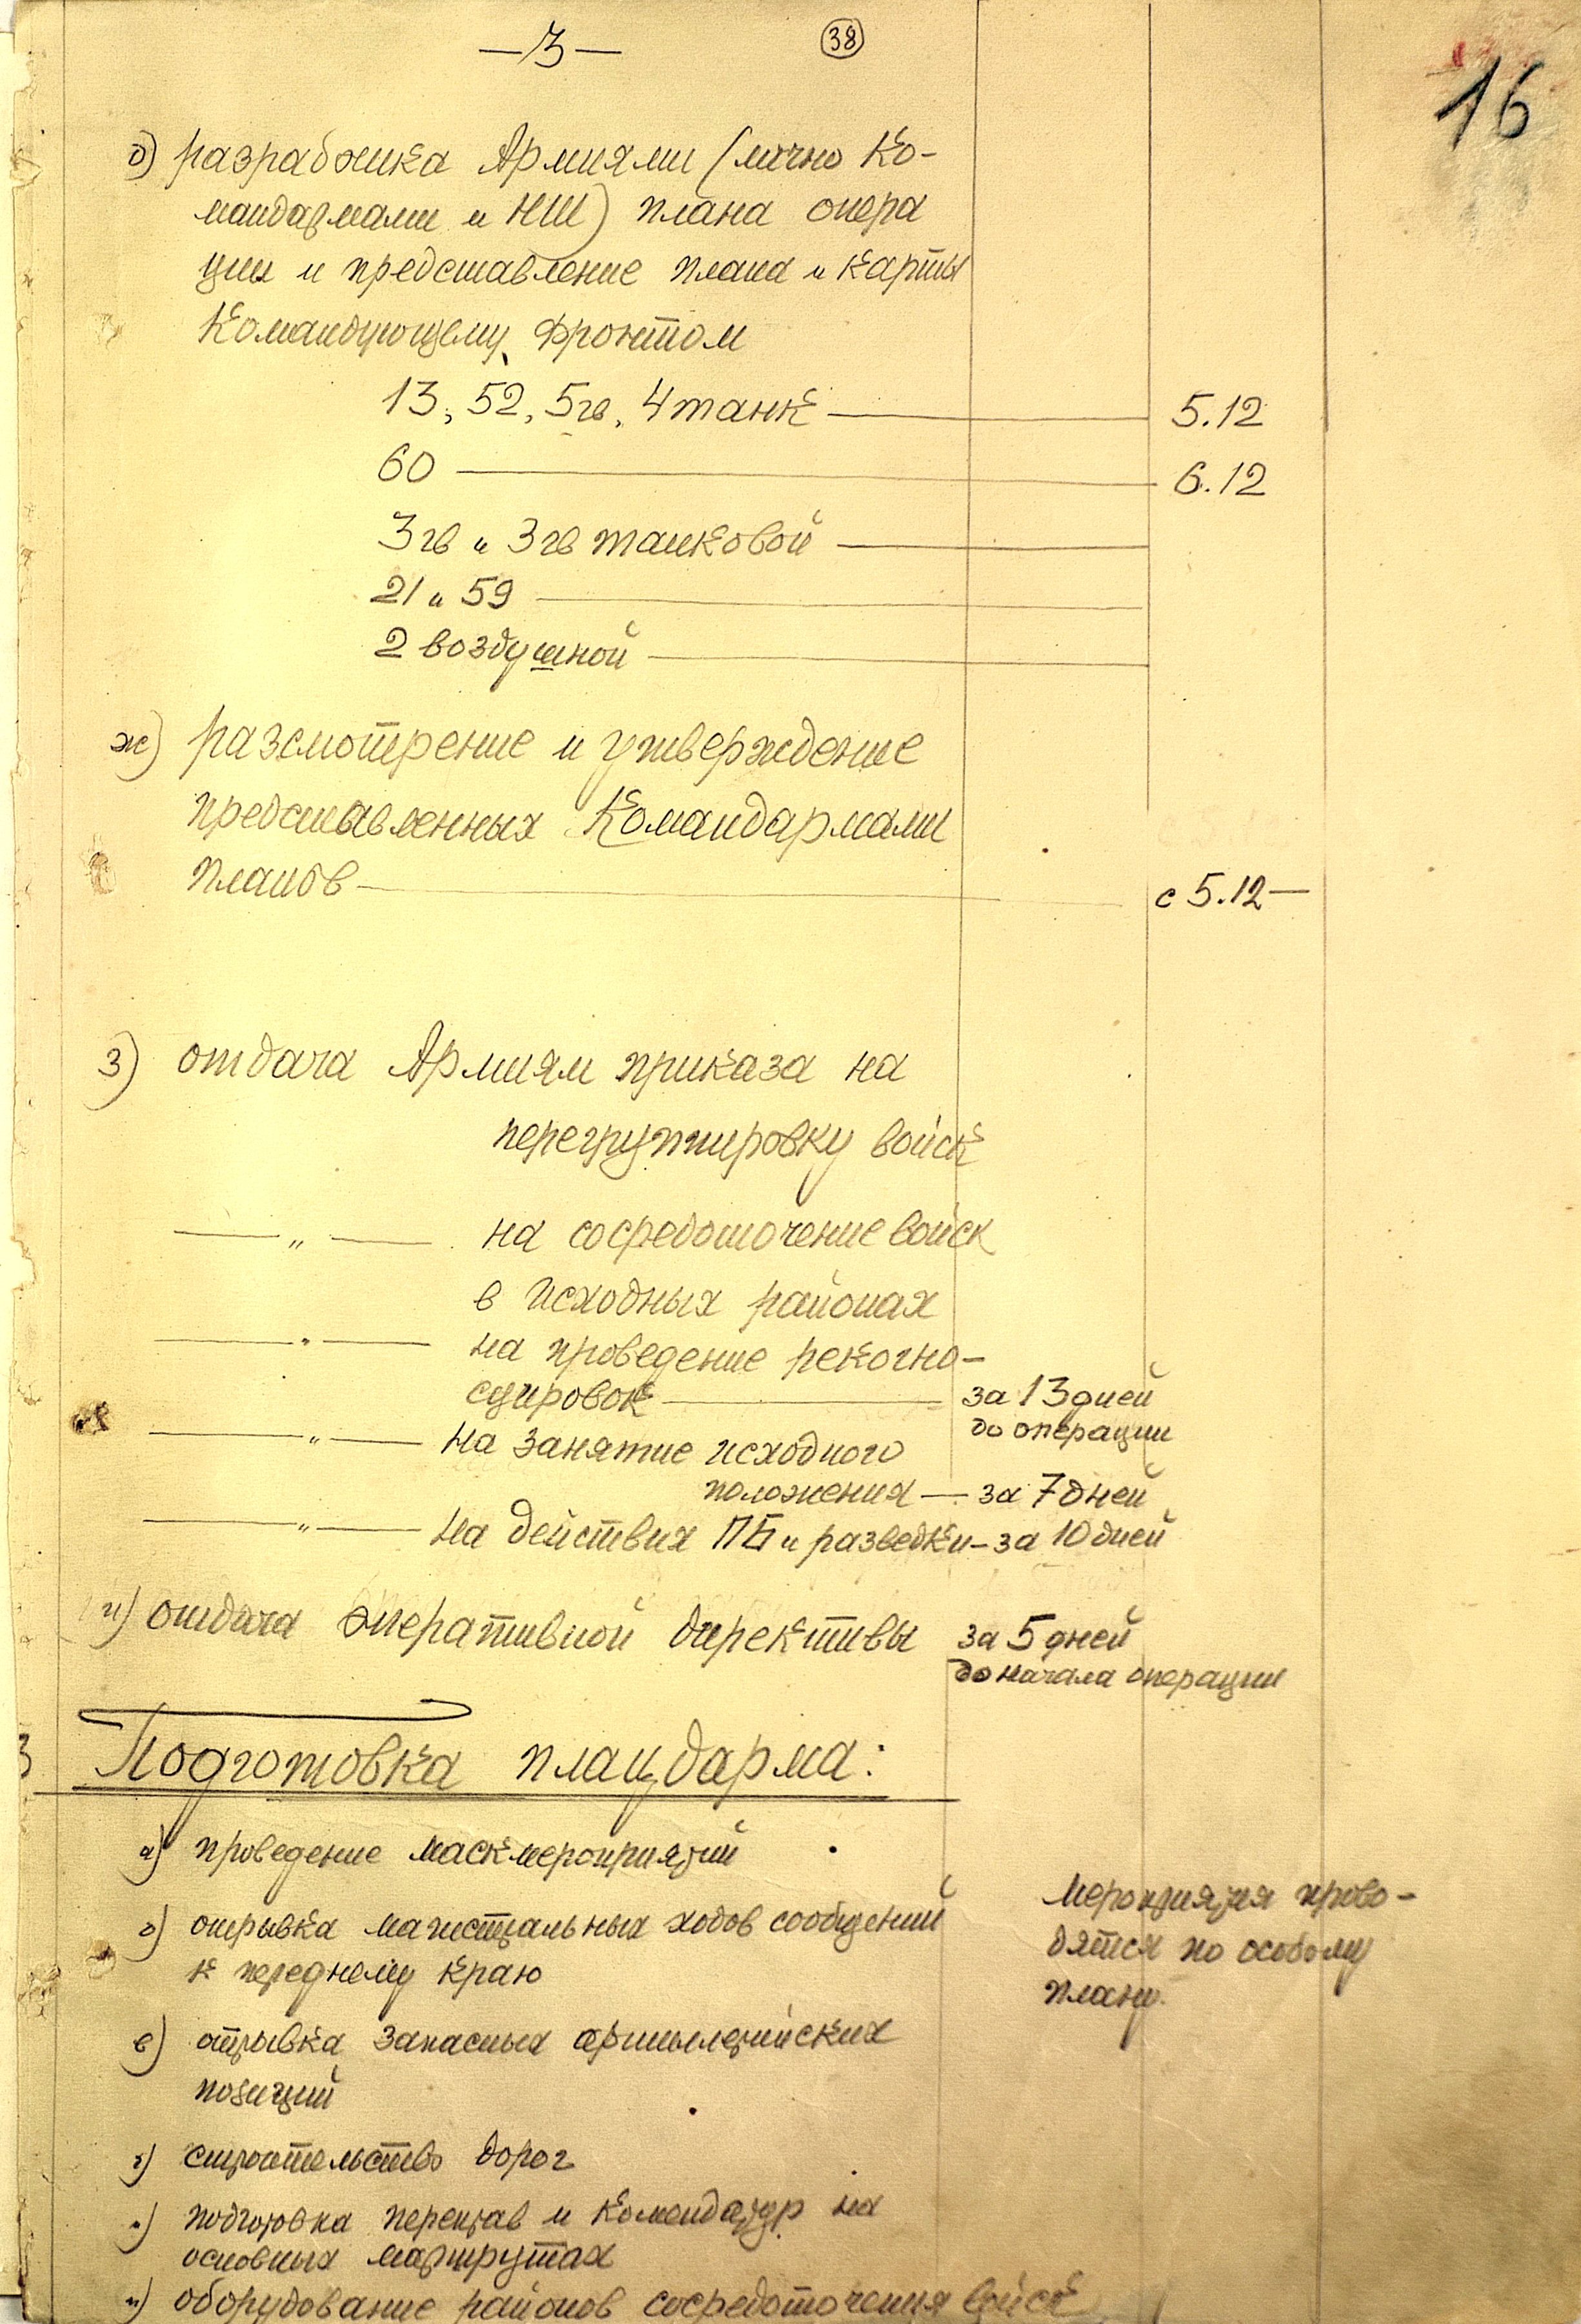 —3—
38
16
д) разработка Армиями (лично Ко-
мандармами и НШ) плана опера
ции и представление плана и карты
Командующему Фронтом
13, 52, 5гв, 4 танк — 5.12
60 — 6.12
3 гв и 3 гв танковой —
21 и 59 —
2 воздушной —
ж) разсмотрение и утверждение
представленных Командармами
планов — с 5.12 —
з) отдача Армиям приказа на
перегруппировку войск
— „ — на сосредоточение войск
в исходных районах
— „ — на проведение рекогно-
сцировок — за 13 дней
до операции
— „ — на занятие исходного
положения — за 7 дней
— „ — на действия ПБ и разведки — за 10 дней
и) отдача оперативной директивы за 5 дней
до начала операции
3 Подготовка плацдарма:
а) проведение маскмероприятий
б) отрывка магистральных ходов сообщений
к переднему краю
Мероприятия прово-
дятся по особому
плану.
в) отрывка запасных артиллерийских
позиций
г) строительство дорог
подготовка переправ и комендатур на
основных маршрутах
оборудование районов сосредоточения войск